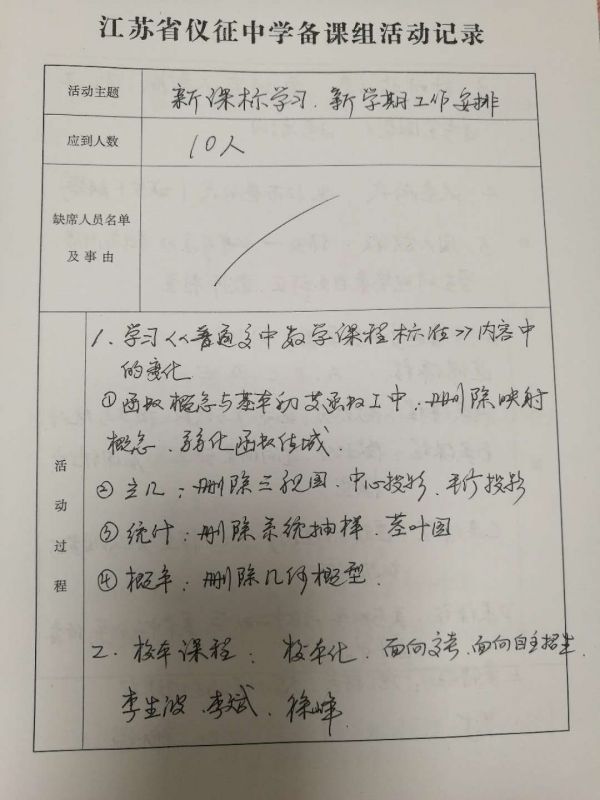 江苏省仪征中学备课组活动记录
活动主题 新课标学习、新学期工作安排
应到人数 10人
缺席人员名单
及事由
活动过程
1、学习《普通高中数学课程标准》内容中
的变化
①函数概念与基本初等函数I中:删除映射
概念、弱化函数值域.
②立几:删除三视图、中心投影、平行投影
③统计:删除系统抽样、茎叶图
④概率:删除几何概型.
2、校本课程: 校本化、面向高考、面向自主招生
李生波、李斌、徐峰.